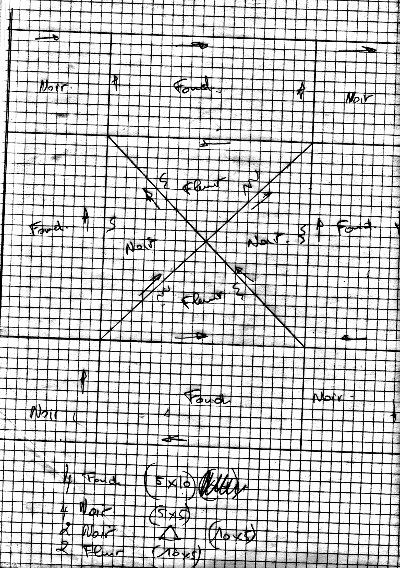 Noir. Fond. Noir
Fleur
Fond. Noir Noir. Fond.
Fleur
Noir. Fond Noir.
4 Fond (5x10)
4 Noir (5x5)
2 Noir (10x5)
2 Fleur (10x5)